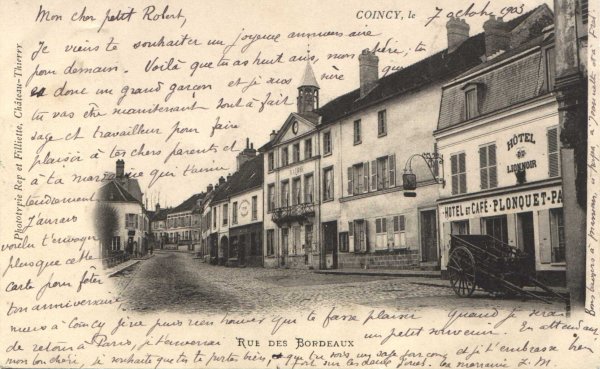 COINCY, le 7 octobre 1903
Mon cher petit Robert,
Je viens te souhaiter un joyeux anniversaire
pour demain. Voilà que tu as huit ans, mon chéri, tu
es donc un grand garçon et je suis sûre
tu vas être maintenant tout à fait
sage et travailleur pour faire
plaisir à tes chers parents et
à ta marraine qui t'aime
tendrement
J'aurais
voulu t'envoyer
plus que cette
carte pour fêter
ton anniversaire
mais à Coincy je ne puis rien trouver qui te fasse plaisir. Quand je serai
de retour à Paris, je t'enverrai un petit souvenir. En attendant
mon bon chéri, je souhaite que tu te portes bien, et que tu sois un sage garçon et je t'embrasse bien
fort sur tes deux joues. Ta marraine
Phototypie Rep et Filliette, Château-Thierry
HÔTEL
DU
LION NOIR
HOTEL ET CAFÉ PLONQUET-PA
RUE DES BORDEAUX